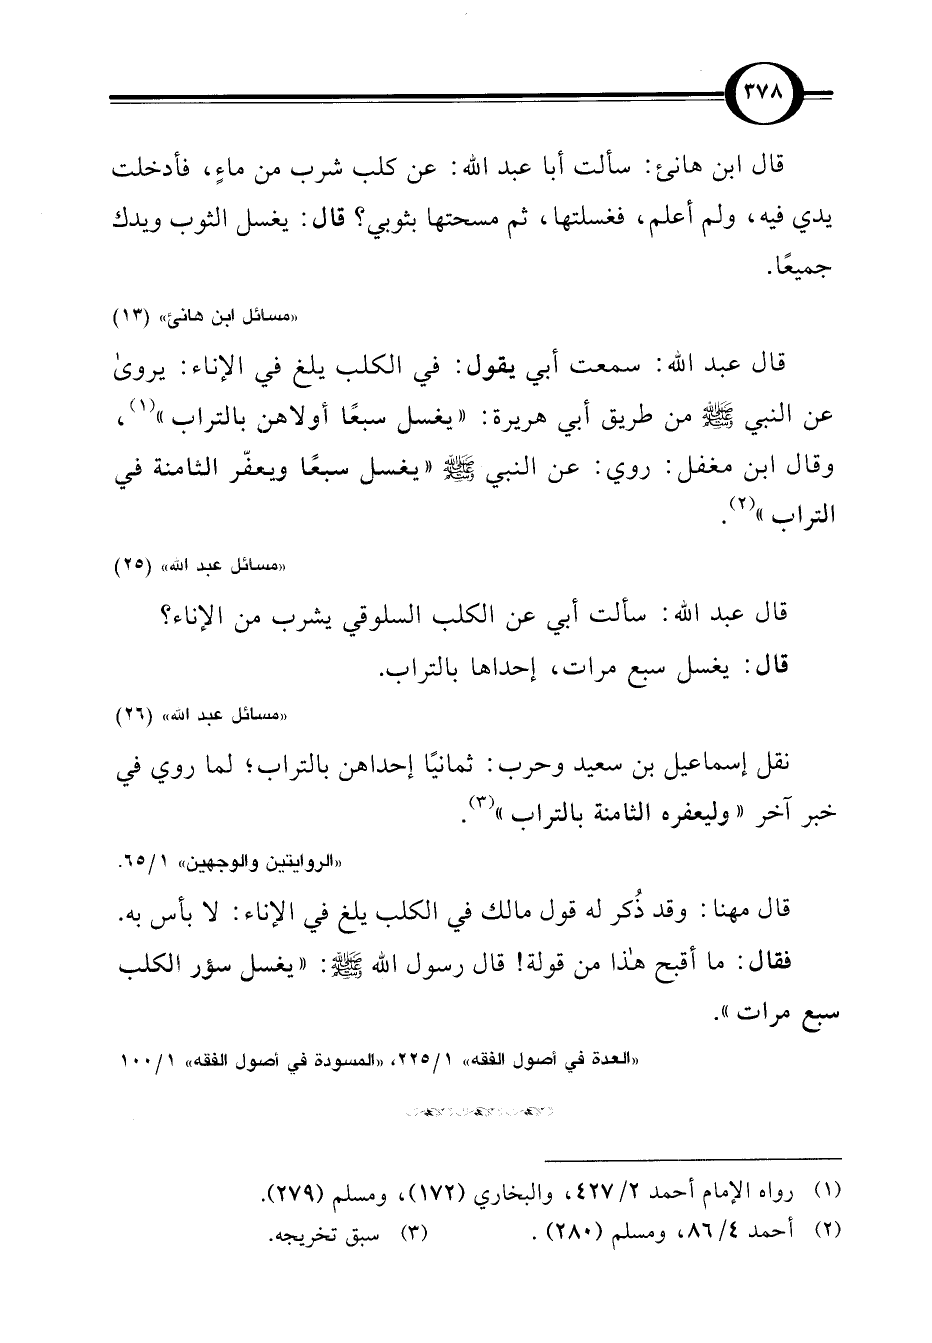 ٣٧٨
قال ابن هانئ: سألت أبا عبد الله: عن كلب شرب من ماءٍ، فأدخلت
يدي فيه، ولم أعلم، فغسلتها، ثم مسحتها بثوبي؟ قال: يغسل الثوب ويدك
جميعًا.
«مسائل ابن هانئ» (١٣)
قال عبد الله: سمعت أبي يقول: في الكلب يلغ في الإناء: يروىٰ
عن النبي ﷺ من طريق أبي هريرة: «يغسل سبعًا أولاهن بالتراب»(١)،
وقال ابن مغفل: روي: عن النبي ﷺ «يغسل سبعًا ويعفّر الثامنة في
التراب»(٢).
«مسائل عبد الله» (٢٥)
قال عبد الله: سألت أبي عن الكلب السلوقي يشرب من الإناء؟
قال: يغسل سبع مرات، إحداها بالتراب.
«مسائل عبد الله» (٢٦)
نقل إسماعيل بن سعيد وحرب: ثمانيًا إحداهن بالتراب؛ لما روي في
خبر آخر «وليعفره الثامنة بالتراب»(٣).
«الروايتين والوجهين» ٦٥/١.
قال مهنا: وقد ذُكر له قول مالك في الكلب يلغ في الإناء: لا بأس به.
فقال: ما أقبح هٰذا من قولة! قال رسول الله ﷺ: «يغسل سؤر الكلب
سبع مرات».
«العدة في أصول الفقه» ٢٢٥/١، «المسودة في أصول الفقه» ١٠٠/١
(١) رواه الإمام أحمد ٤٢٧/٢، والبخاري (١٧٢)، ومسلم (٢٧٩).
(٢) أحمد ٨٦/٤، ومسلم (٢٨٠). (٣) سبق تخريجه.